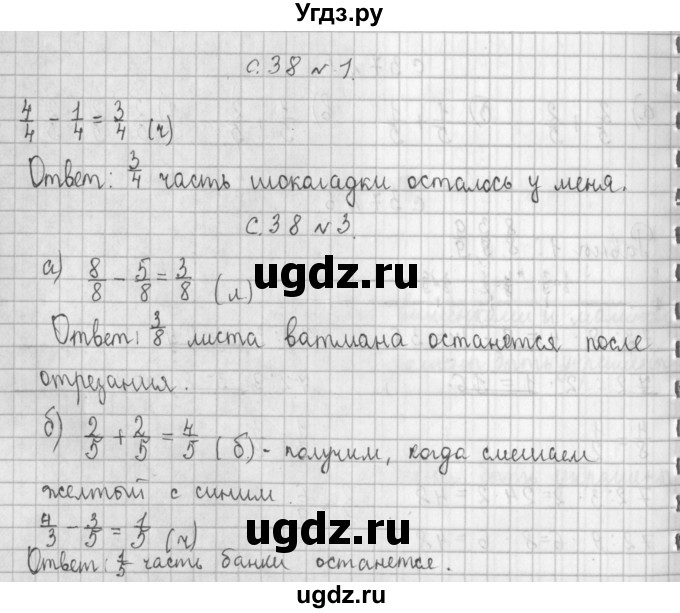 Угдз.ру
с.38 № 1.
4/4 - 1/4 = 3/4 (ч)
Ответ: 3/4 часть шокаладки осталось у меня.
с.38 № 3.
а) 8/8 - 5/8 = 3/8 (л)
ugdz.ru
Ответ: 3/8 листа ватмана останется после
отрезания.
б) 2/5 + 2/5 = 4/5 (б) - получим, когда смешаем
ugdz.ru
желтый с синим.
4/3 - 3/5 = 1/5 (ч)
ugdz.ru
Ответ: 1/5 часть банки останется.
ugdz.ru